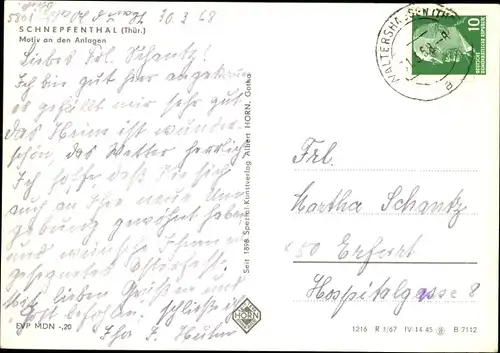 30.3.68
SCHNEPFENTHAL (Thür.)
Motiv an den Anlagen
Liebes Frl. Schantz!
Ich bin gut hier angekommen
es gefällt mir sehr gut
das Heim ist wunder-
schön, das Wetter herrlich
Ich hoffe, daß Sie sich
auch an Ihre neue Um-
gebung gewöhnt haben
und wünsche Ihnen ein
gesegnetes Osterfest.
Mit lieben Grüßen und
Gott befohlen. schließe ich
Ihr
EVP MDN -,20
Seit 1898 Spezial-Kunstverlag Albert HORN, Gotha
HORN
WALTERSHAUSEN (THÜR)
10
DEUTSCHE DEMOKRATISCHE REPUBLIK
Frl.
Martha Schantz
50 Erfurt
Hospitalgasse 8
1216 R 1/67 IV-14-45 B 7112